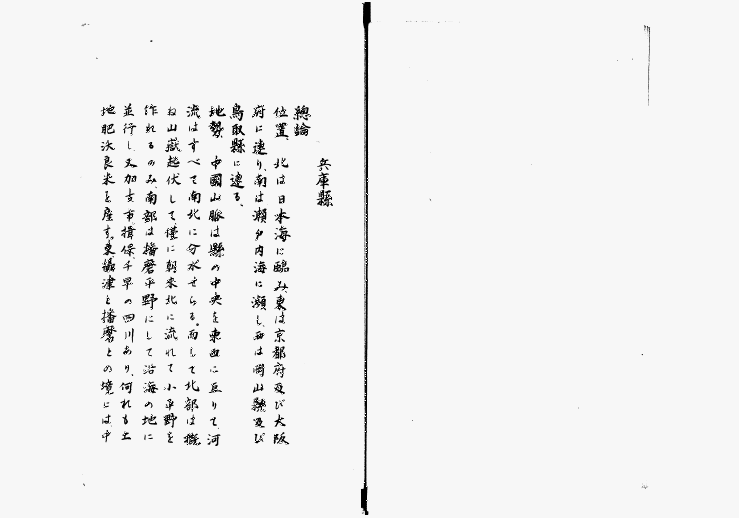 兵庫縣
總論
位置、北は日本海に臨み、東は京都府及び大阪
府に連り、南は瀬戸内海に瀕し、西は岡山縣及び
鳥取縣に連る、
地勢、中國山脈は縣の中央を東西に亘りて、河
流はすべて南北に分水せらる。而して北部は概
ね山嶽起伏して、僅に朝来北に流れて小平野を
作れるのみ、南部は播磨平野にして沿海の地に
並行し、又加古市、揖保、千早の四川あり、何れも土
地肥沃良米を産す。東攝津と播磨との境には中